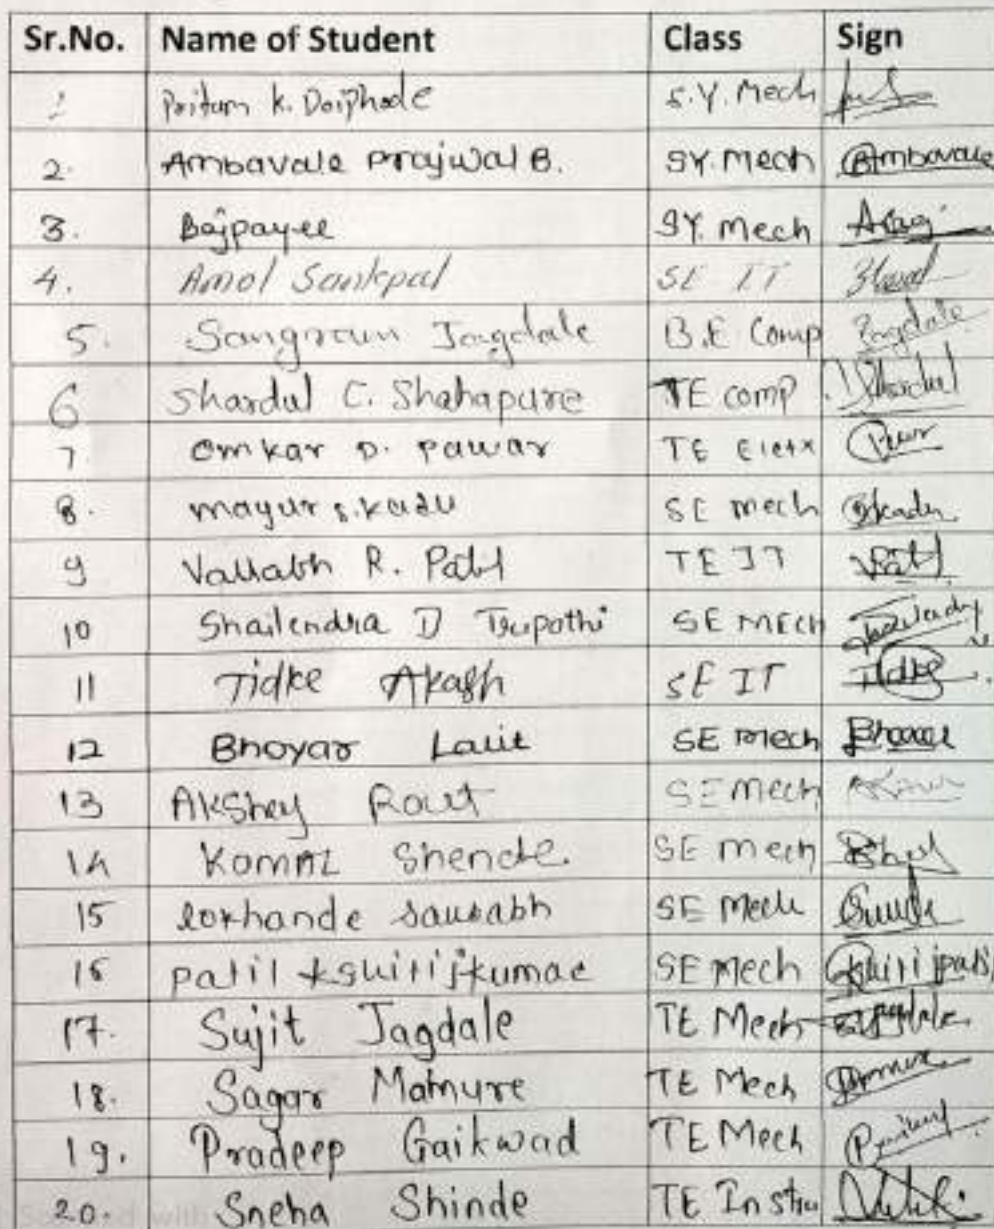 Sr.No. Name of Student Class Sign
1 Pritam K. Doiphode S.Y. Mech
2. Ambavale Prajwal B. SY. Mech Ambavale
3. Bajpayee SY. Mech
4. Amol Sankpal SE IT
5. Sangram Jagdale B.E Comp Jagdale
6 Shardul C. Shahapure TE comp Shardul
7. Omkar D. Pawar TE
8. mayur s. kadu SE mech Skadu
9 Vallabh R. Patil TE IT Patil
10 Shailendra D Tripathi SE MECH
11 Tidke Akash SE IT Tidke
12 Bhoyar Lalit SE mech
13 Akshay Raut SE Mech
14 KOMAL Shende SE mech
15 lokhande saurabh SE Mech
16 patil kshitijkumar SE Mech kshitijpatil
17. Sujit Jagdale TE Mech
18. Sagar Mamure TE Mech
19. Pradeep Gaikwad TE Mech
20. Sneha Shinde TE Instru